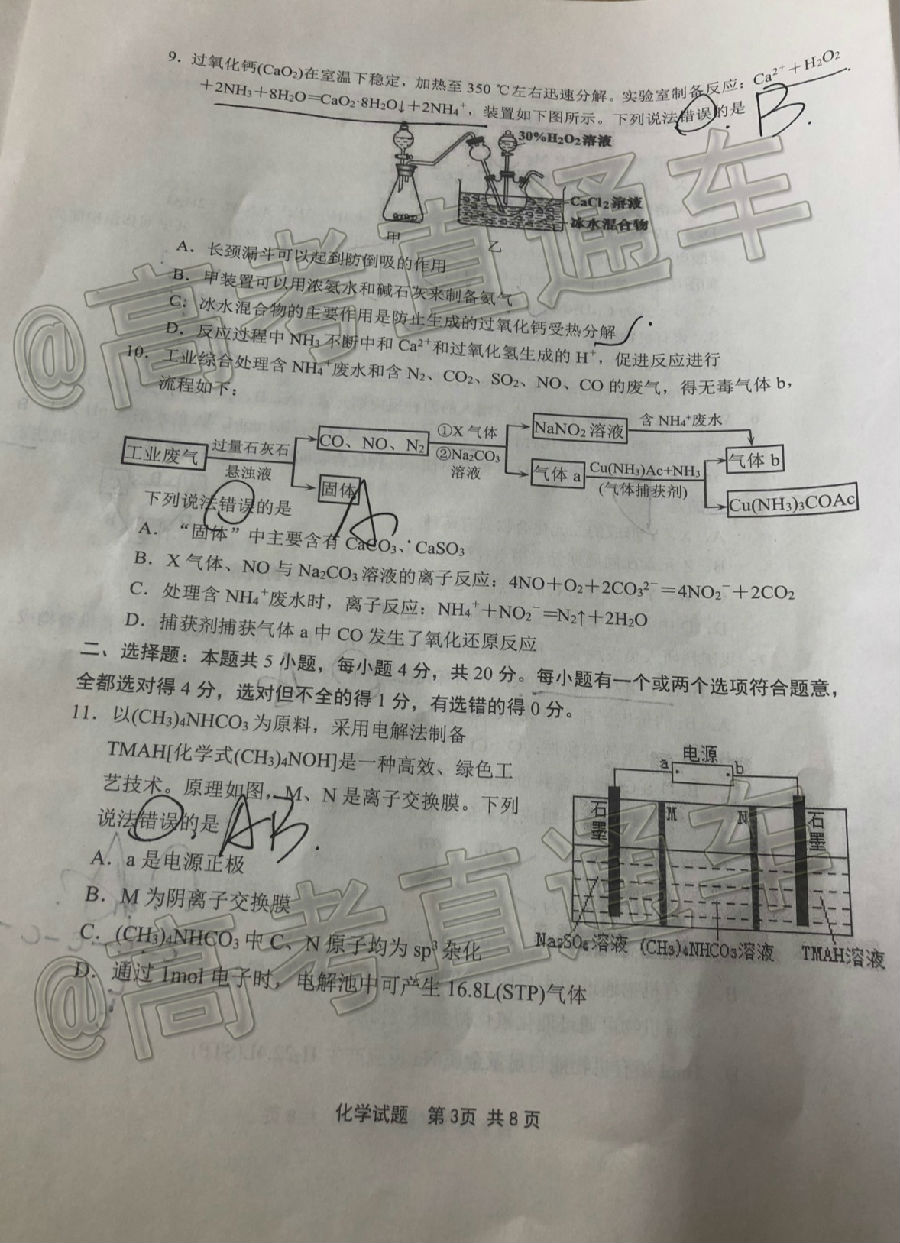 9．过氧化钙(CaO₂)在室温下稳定，加热至 350 ℃左右迅速分解。实验室制备反应：Ca²⁺＋H₂O₂
＋2NH₃＋8H₂O═CaO₂·8H₂O↓＋2NH₄⁺，装置如下图所示。下列说法错误的是
B.
30%H₂O₂溶液
CaCl₂溶液
冰水混合物
甲
乙
A．长颈漏斗可以起到防倒吸的作用
B．甲装置可以用浓氨水和碱石灰来制备氨气
C．冰水混合物的主要作用是防止生成的过氧化钙受热分解
D．反应过程中 NH₃ 不断中和 Ca²⁺和过氧化氢生成的 H⁺，促进反应进行
10．工业综合处理含 NH₄⁺废水和含 N₂、CO₂、SO₂、NO、CO 的废气，得无毒气体 b，
流程如下：
工业废气
过量石灰石
悬浊液
CO、NO、N₂
固体
①X 气体
②Na₂CO₃
溶液
NaNO₂ 溶液
含 NH₄⁺废水
气体 a
Cu(NH₃)Ac+NH₃
(气体捕获剂)
气体 b
Cu(NH₃)₃COAc
下列说法错误的是
A
A．“固体”中主要含有 CaCO₃、CaSO₃
B．X 气体、NO 与 Na₂CO₃ 溶液的离子反应：4NO＋O₂＋2CO₃²⁻═4NO₂⁻＋2CO₂
C．处理含 NH₄⁺废水时，离子反应：NH₄⁺＋NO₂⁻═N₂↑＋2H₂O
D．捕获剂捕获气体 a 中 CO 发生了氧化还原反应
二、选择题：本题共 5 小题，每小题 4 分，共 20 分。每小题有一个或两个选项符合题意，
全都选对得 4 分，选对但不全的得 1 分，有选错的得 0 分。
11．以(CH₃)₄NHCO₃ 为原料，采用电解法制备
TMAH[化学式(CH₃)₄NOH]是一种高效、绿色工
艺技术。原理如图，M、N 是离子交换膜。下列
说法错误的是
AB.
A．a 是电源正极
B．M 为阴离子交换膜
C．(CH₃)₄NHCO₃ 中 C、N 原子均为 sp³ 杂化
D．通过 1mol 电子时，电解池中可产生 16.8L(STP)气体
电源
a
b
石墨
M
N
石墨
Na₂SO₄溶液
(CH₃)₄NHCO₃溶液
TMAH溶液
化学试题 第 3页 共 8 页
@高考直通车
@高考直通车